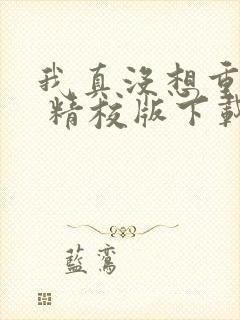 我真没想重
精校版下载
藍鸾